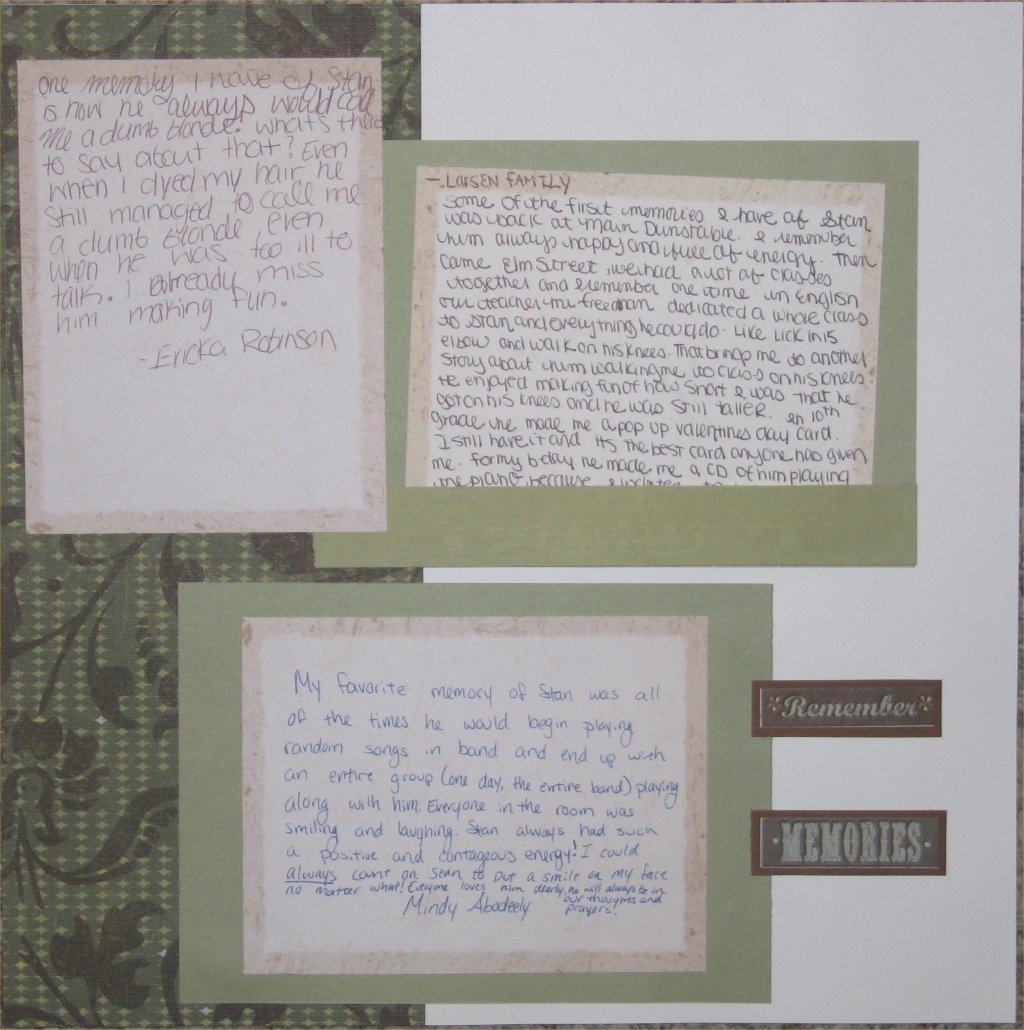 one memory i have of Stan
is how he always would call
me a dumb blonde! what's there
to say about that? Even
when I dyed my hair he
still managed to call me
a dumb blonde even
when he was too ill to
talk. I already miss
him making fun.
-Ericka Robinson
- Larsen FAMILY
Some of the first memories I have of Stan
was back at Main Dunstable. I remember
him always happy and full of energy. Then
came Elm Street we had a lot of classes
together and I remember one time in English
our teacher mr freeman dedicated a whole class
to Stan and everything he could do. Like lick his
elbow and walk on his knees. That brings me to another
story about him walking me to class on his knees.
He enjoyed making fun of how short I was that he
got on his knees and he was still taller. In 10th
grade he made me a pop up valentines day card.
I still have it and its the best card anyone has given
me. For my b-day he made me a CD of him playing
the piano because I wanted to
My favorite memory of Stan was all
of the times he would begin playing
random songs in band and end up with
an entire group (one day, the entire band) playing
along with him. Everyone in the room was
smiling and laughing. Stan always had such
a positive and contageous energy! I could
always count on Stan to put a smile on my face
no matter what! Everyone loves him dearly, he will always be in
our thoughts and
prayers!
Mindy Abodeely
Remember
·MEMORIES·